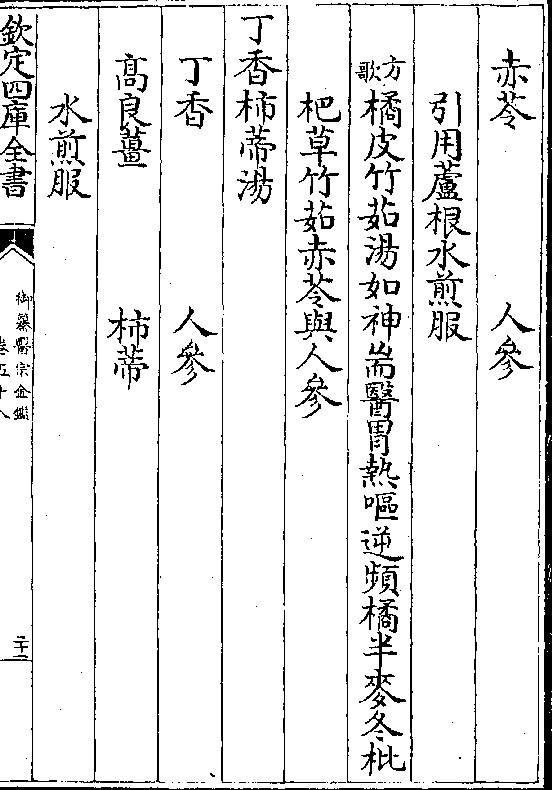 赤苓　人參
引用蘆根水煎服
方歌 橘皮竹茹湯如神耑醫胃熱嘔逆頻橘半麥冬枇
杷草竹茹赤苓與人參
丁香柿蒂湯
丁香　人參
高良薑　柿蒂
水煎服
欽定四庫全書
御纂醫宗金鑑
卷五十八
二十二